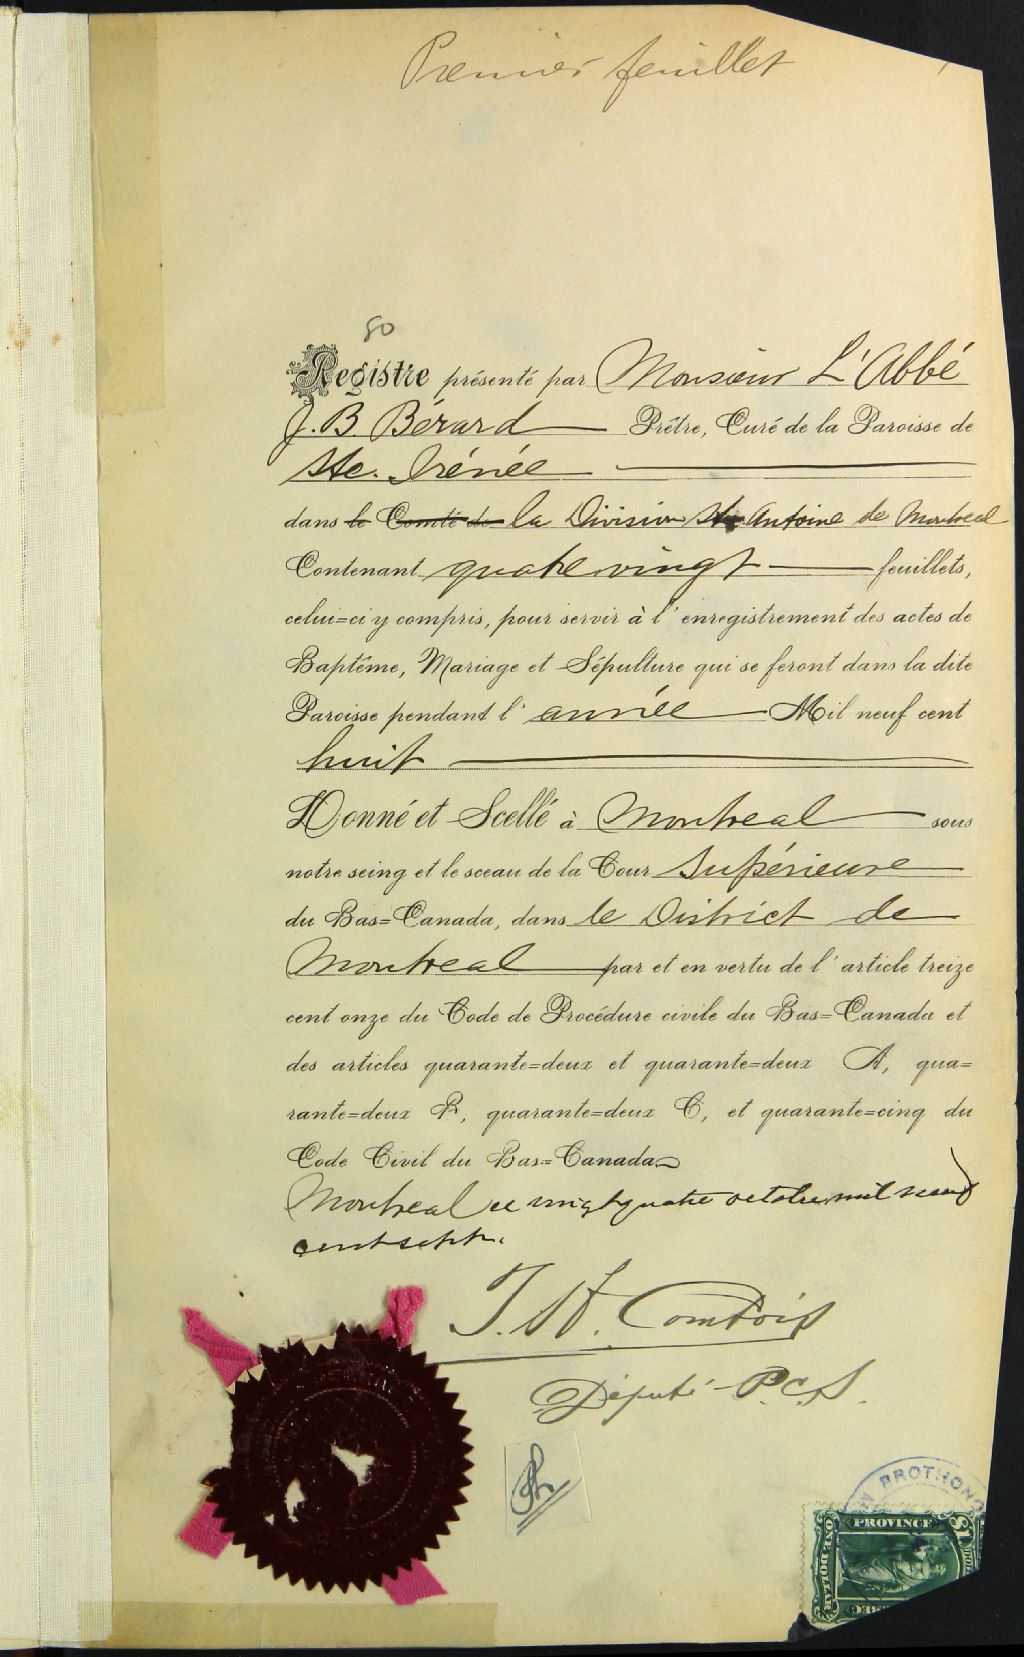 Premier feuillet
80
Registre présenté par Monsieur L'Abbé
J. B. Bérard Prêtre, Curé de la Paroisse de
Ste. Irénée
dans le Comté de la Division St Antoine de Montreal
Contenant quatre vingt feuillets,
celui=ci y compris, pour servir à l'enregistrement des actes de
Baptême, Mariage et Sépulture qui se feront dans la dite
Paroisse pendant l'année Mil neuf cent
huit
Donné et Scellé à Montreal sous
notre seing et le sceau de la Cour Supérieure
du Bas=Canada, dans le District de
Montreal par et en vertu de l'article treize
cent onze du Code de Procédure civile du Bas=Canada et
des articles quarante=deux et quarante=deux A, qua=
rante=deux B, quarante=deux C, et quarante=cinq du
Code Civil du Bas=Canada
Montreal ce vingt quatre octobre mil neuf
cent sept.
J. H. Comtois
Député P.C.S.
PROTHONO
PROVINCE
$1
ONE DOLLAR